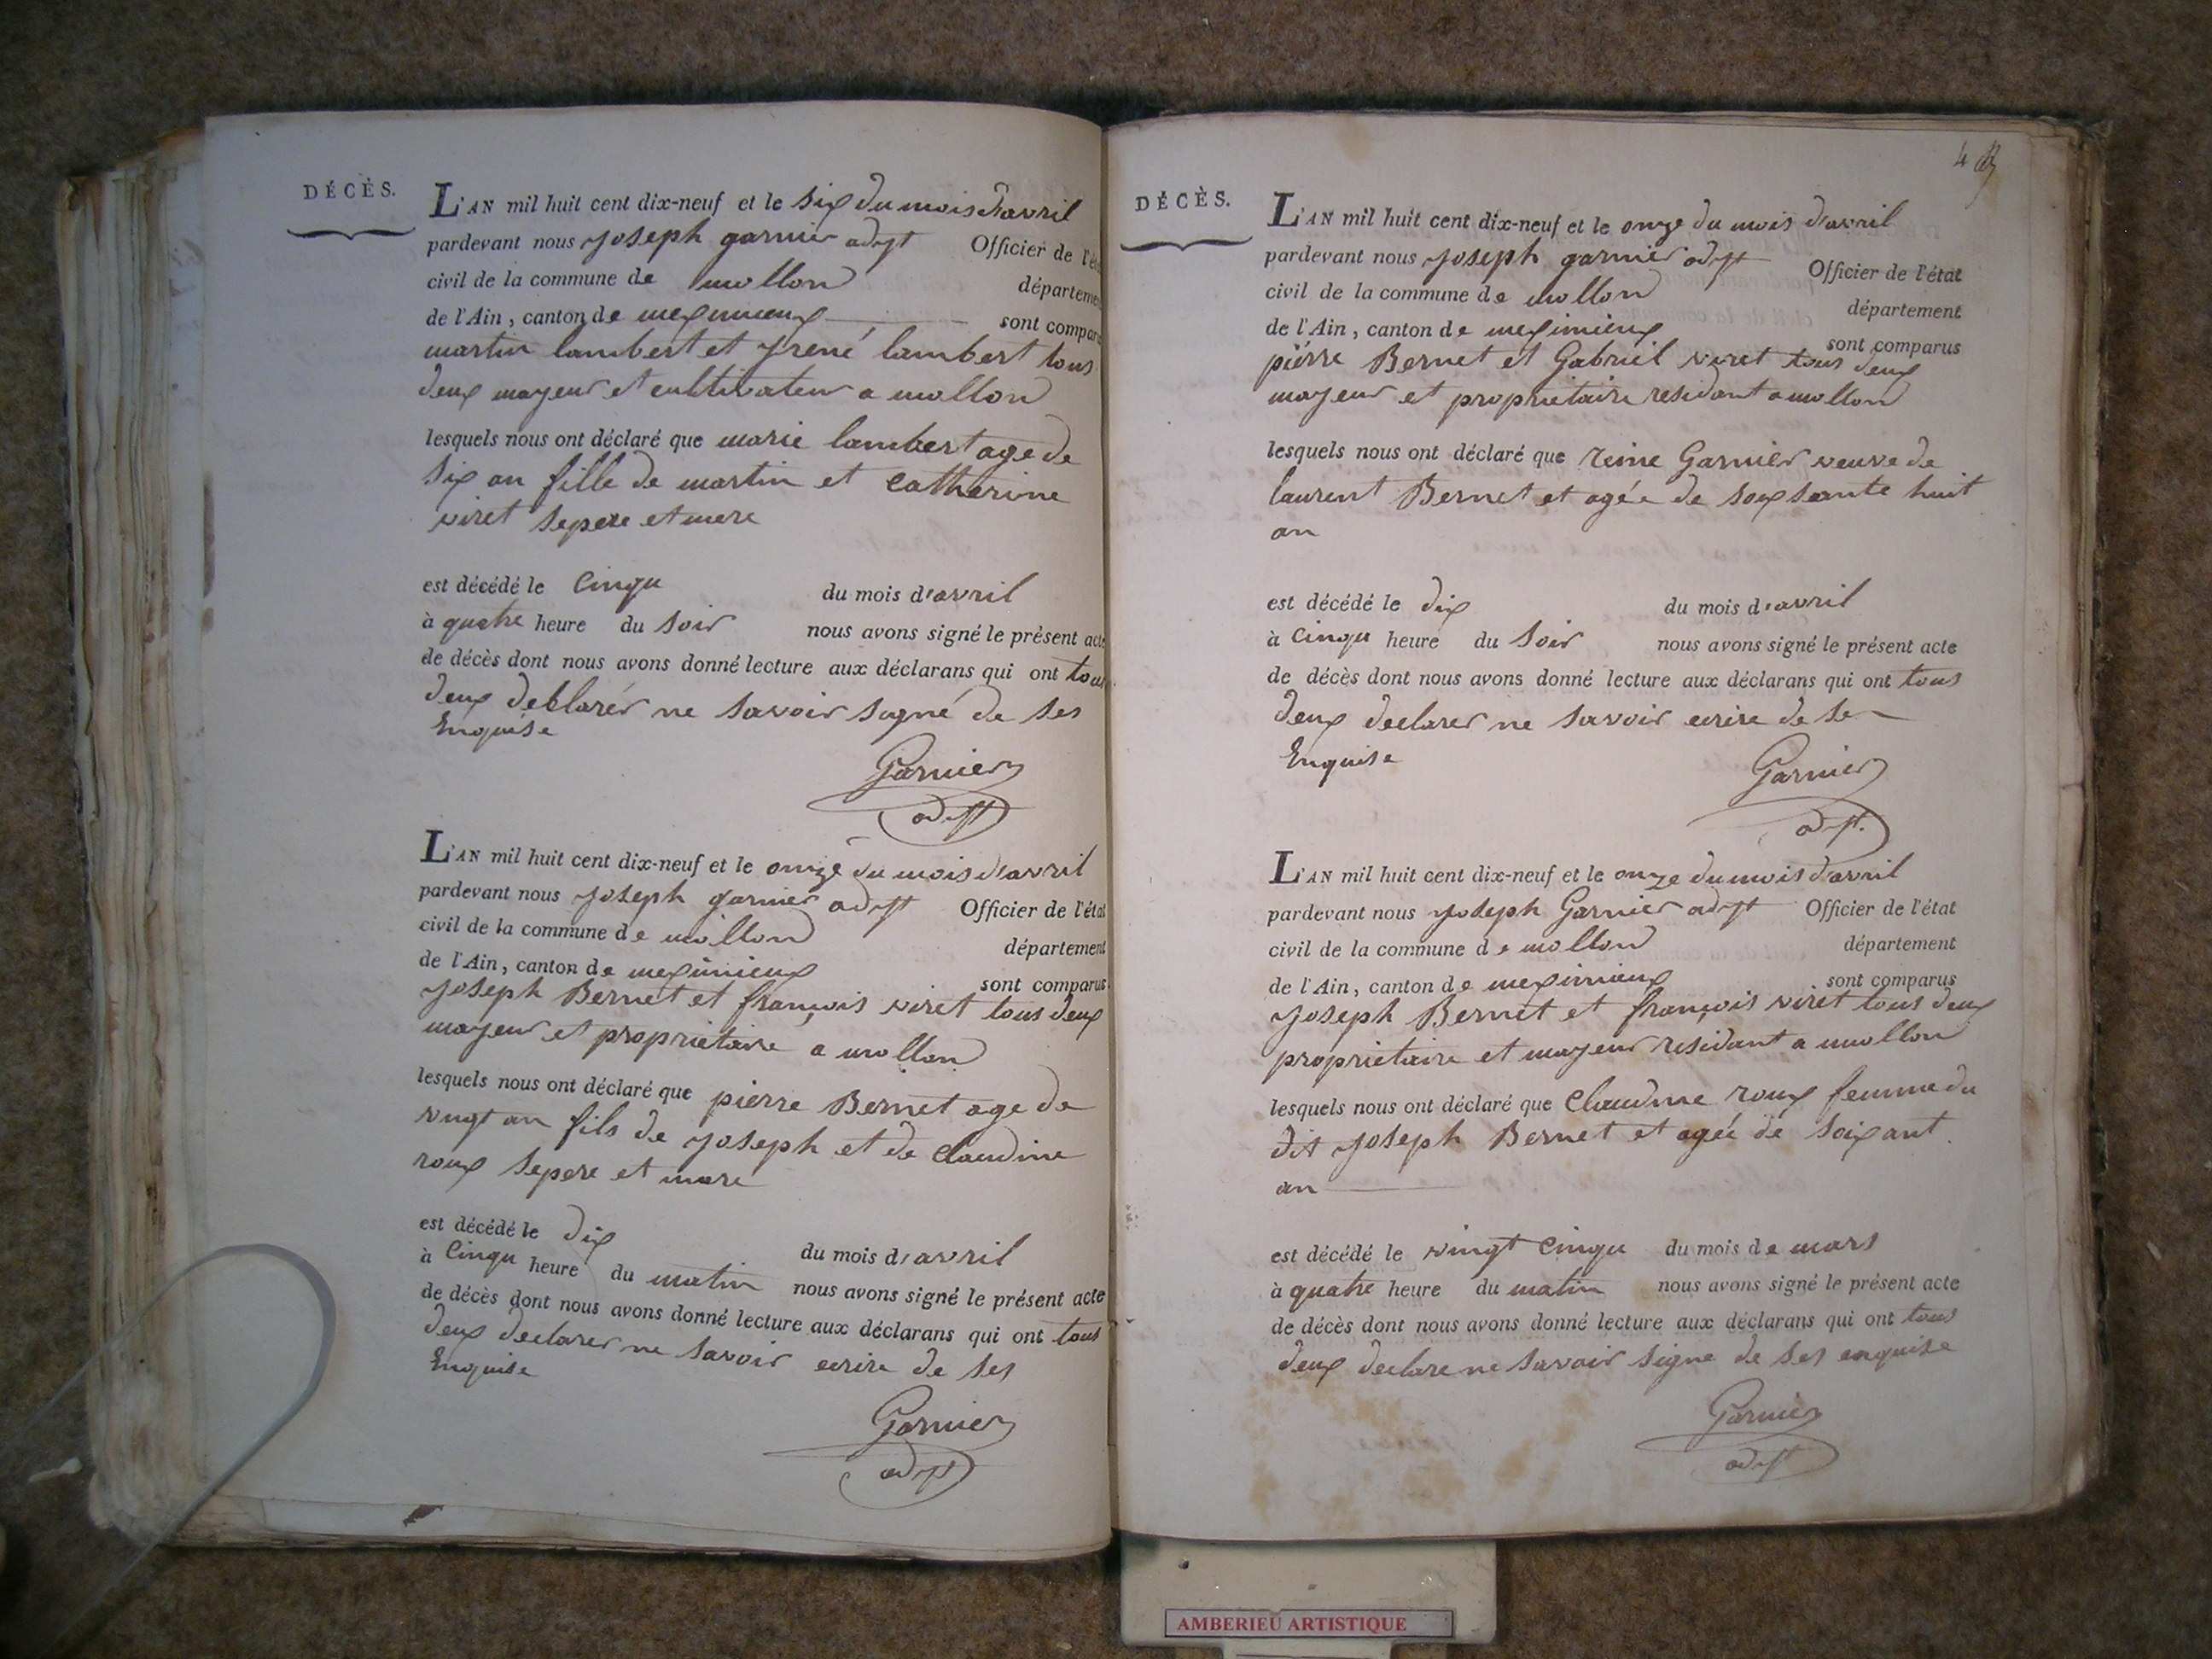 DÉCÈS.
L'AN mil huit cent dix-neuf et le six du mois d'avril
pardevant nous joseph garnier adjt Officier de l'éta
civil de la commune de mollon départemen
de l'Ain, canton de meximieux sont compar
martin lambert et jrené lambert tous
deux mayeur et cultivateur a mollon
lesquels nous ont déclaré que marie lambert age de
six an fille de martin et catherine
viret sepere et mere
est décédé le cinqu du mois d'avril
à quatre heure du soir nous avons signé le présent acte
de décès dont nous avons donné lecture aux déclarans qui ont tous
deux deblarér ne savoir sogné de ses
Enquise
Garnier
adjt
L'AN mil huit cent dix-neuf et le onze du mois d'avril
pardevant nous joseph garnier adjt Officier de l'état
civil de la commune de mollon département
de l'Ain, canton de meximieux sont comparus
joseph Bernet et françois viret tous deux
mayeur et proprietaire a mollon
lesquels nous ont déclaré que pierre Bernet age de
vingt an fils de joseph et de claudine
roux sepere et mere
est décédé le dix du mois d'avril
à cinqu heure du matin nous avons signé le présent acte
de décès dont nous avons donné lecture aux déclarans qui ont tous
deux declarer ne savoir ecrire de ses
Enquise
Garnier
adjt
4
DÉCÈS.
L'AN mil huit cent dix-neuf et le onze du mois d'avril
pardevant nous joseph garnier adjt Officier de l'état
civil de la commune de mollon département
de l'Ain, canton de meximieux sont comparus
piérre Bernet et Gabriel viret tous deux
mayeur et proprietaire residant a mollon
lesquels nous ont déclaré que reine Garnier veuve de
laurent Bernet et agée de soixsante huit
an
est décédé le dix du mois d'avril
à cinqu heure du soir nous avons signé le présent acte
de décès dont nous avons donné lecture aux déclarans qui ont tous
deux declarer ne savoir ecrire de se
Enquise
Garnier
adjt.
L'AN mil huit cent dix-neuf et le onze du mois d'avril
pardevant nous joseph Garnier adjt Officier de l'état
civil de la commune de mollon département
de l'Ain, canton de meximieux sont comparus
joseph Bernet et françois viret tous deux
proprietaire et mayeur residant a mollon
lesquels nous ont déclaré que claudine roux femme du
dit joseph Bernet et agée de soixant
an
est décédé le vingt cinqu du mois de mars
à quatre heure du matin nous avons signé le présent acte
de décès dont nous avons donné lecture aux déclarans qui ont tous
deux declare ne savoir signe de ses enquise
Garnier
adjt
AMBERIEU ARTISTIQUE